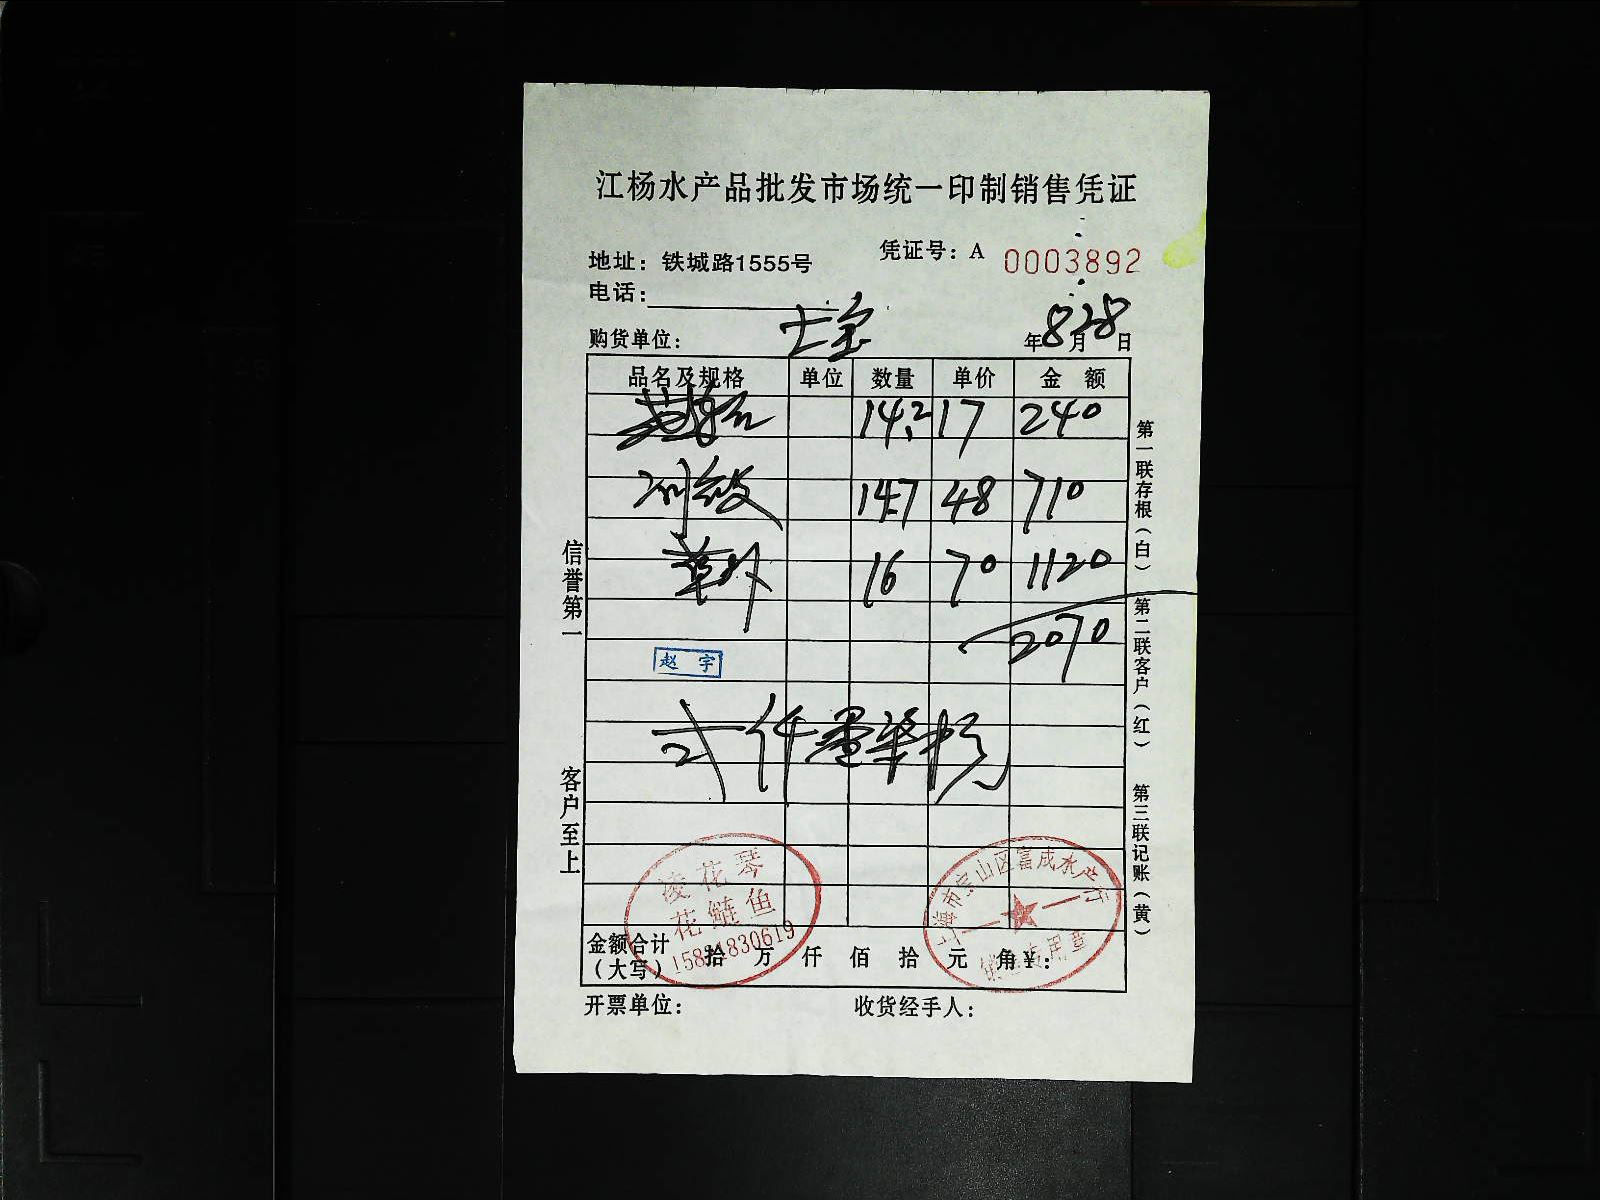 江杨水产品批发市场统一印制销售凭证
地址：铁城路1555号
凭证号：A 0003892
电话：
购货单位：七宝
年8月28日
品名及规格 单位 数量 单价 金额
14.2 17 240
14.7 48 710
16 70 1120
2070
赵宇
弍仟零柒拾元
凌花琴
花鲢鱼
上海市宝山区富成水产行
专用章
金额合计（大写） 拾 万 仟 佰 拾 元 角 ¥：
开票单位： 收货经手人：
信誉第一 客户至上
第一联存根（白） 第二联客户（红） 第三联记账（黄）